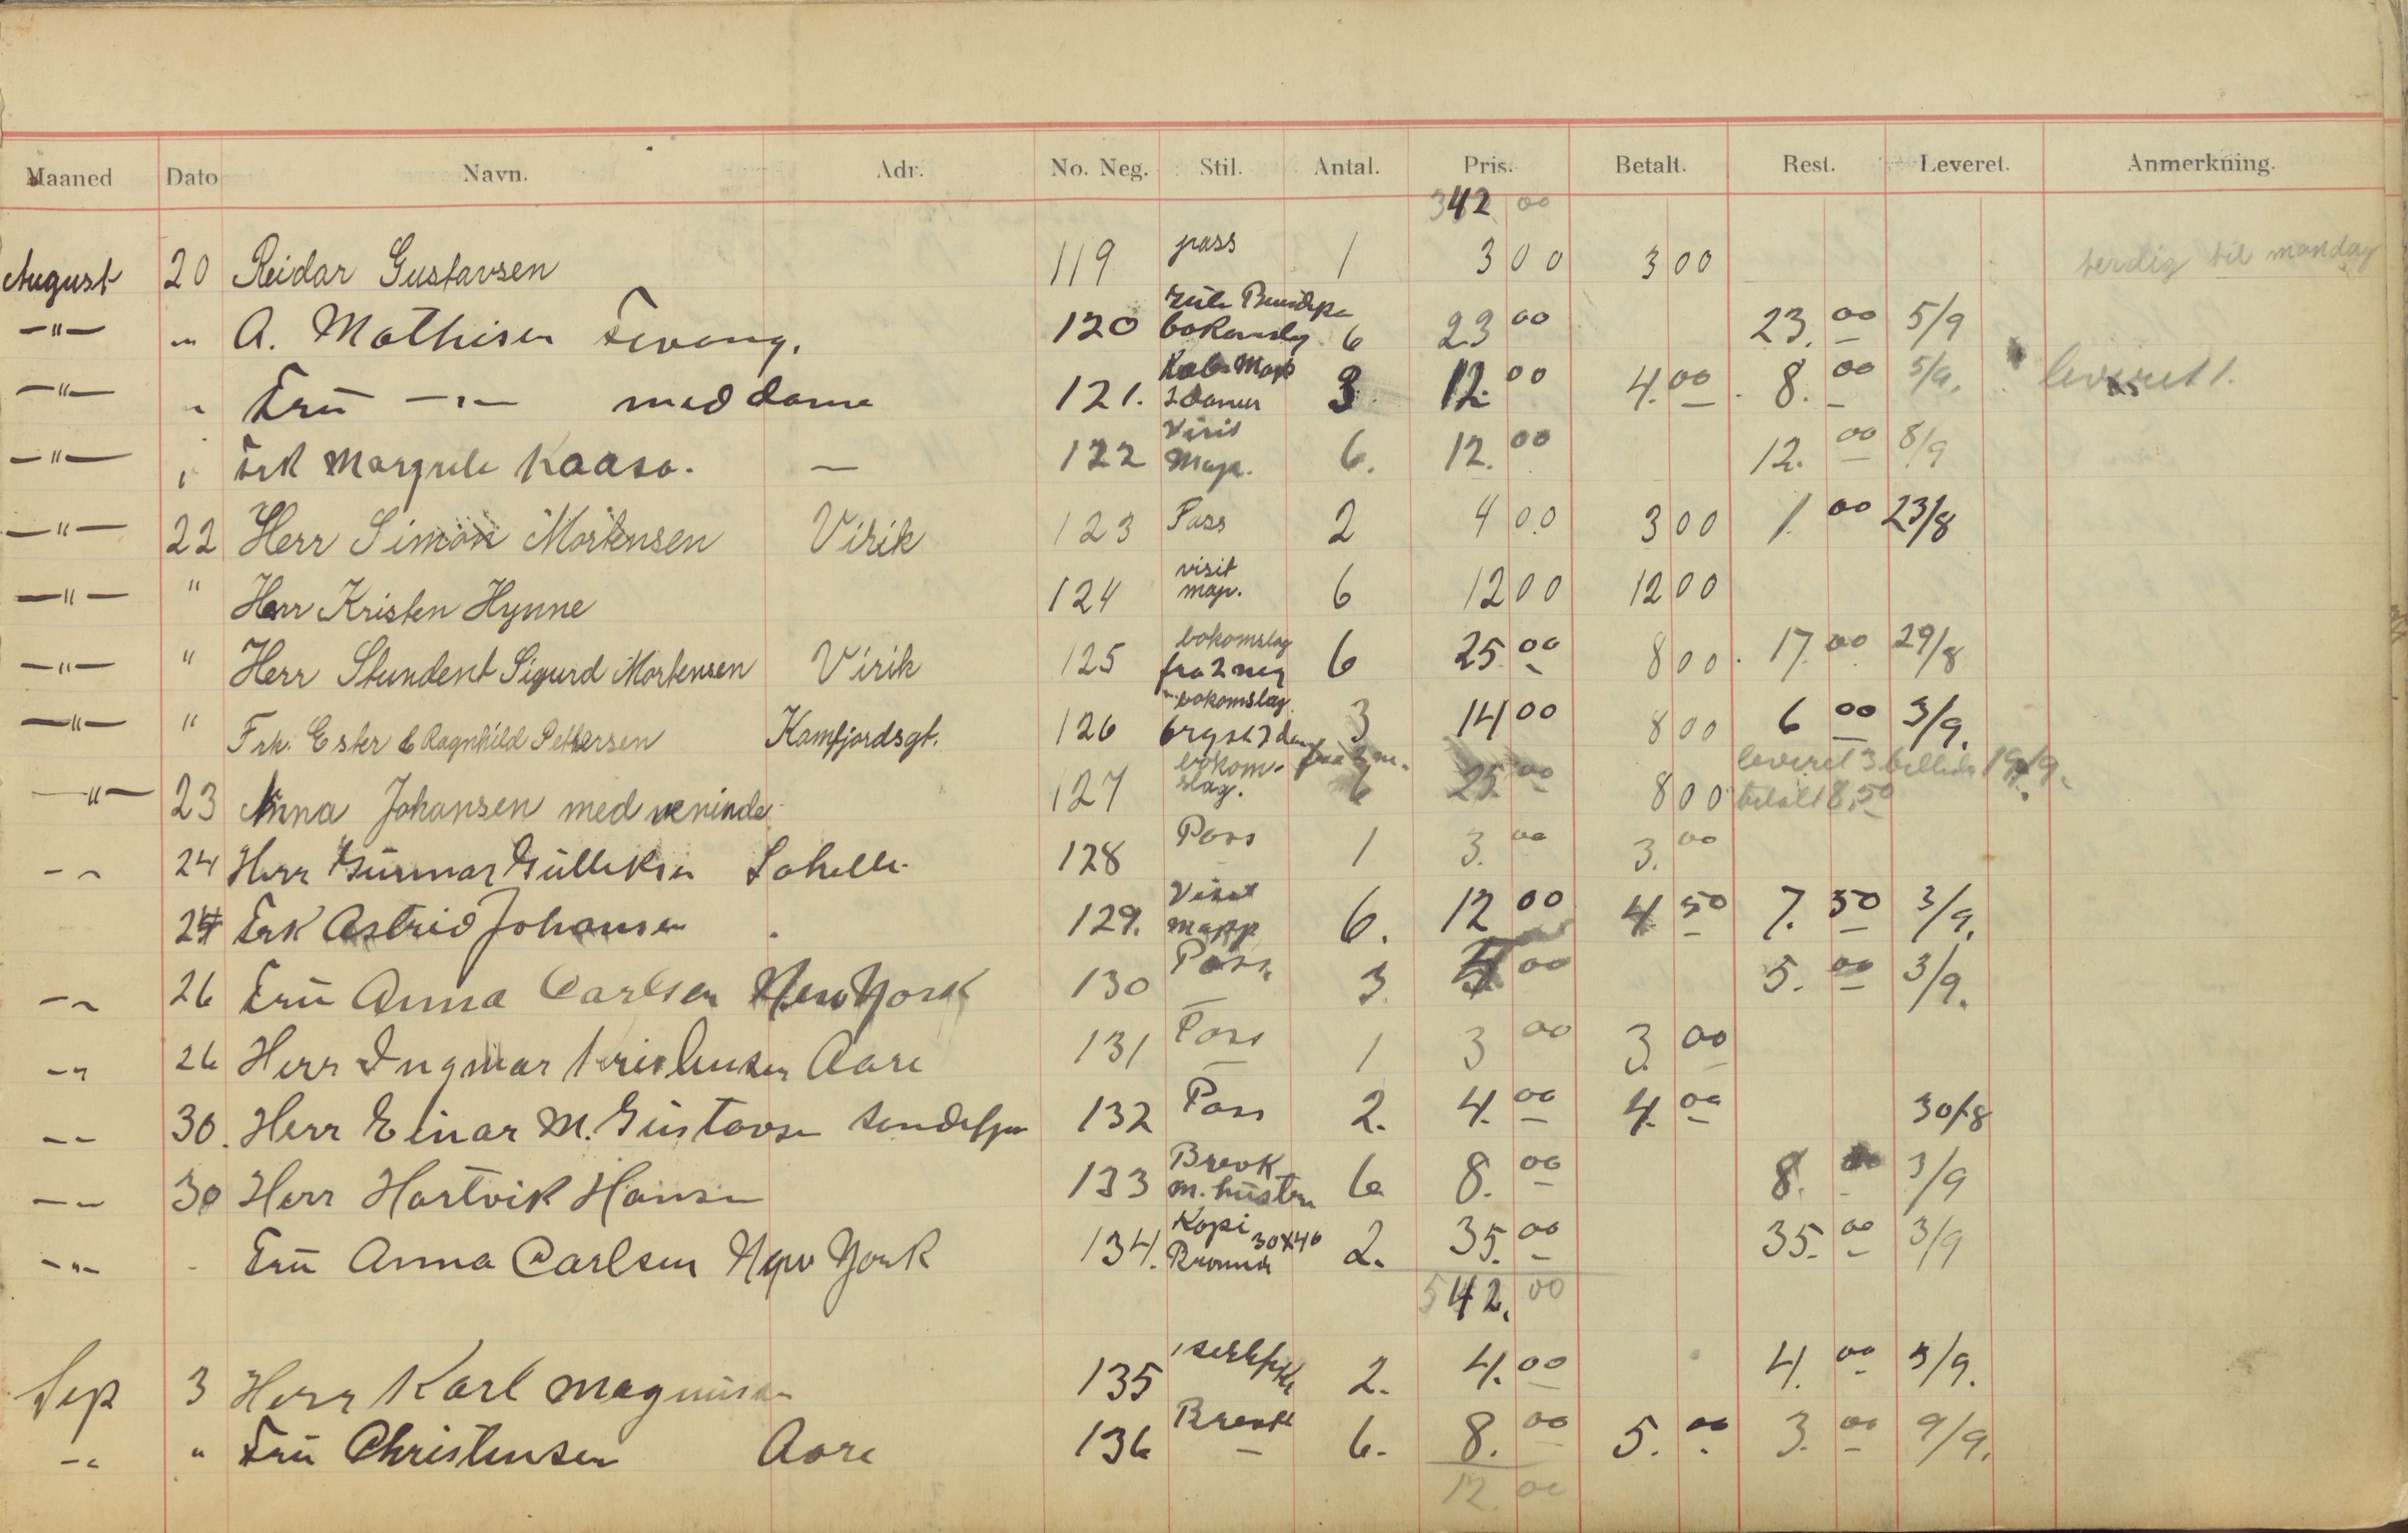 Maaned Dato Navn. Adr. No. Neg. Stil. Antal. Pris. Betalt. Rest. Leveret. Anmerkning.
342 00
August 20 Reidar Gustavsen 119 pass 1 3 00 3 00 ferdig til mandag
—"— " A. Mathisen 120 6 23 00 23. 00 5/9
—"— " Fru —"— med dame 121. 2 damer 3 12. 00 4. 00 8. 00 5/9. leveret 1.
—"— " Frk Kaasa. — 122 Visit Map. 6. 12. 00 12. 00 8/9
—"— 22 Herr Simon Mortensen Virik 123 Pass 2 4 00 3 00 1. 00 23/8
—"— " Herr Kristen Hynne 124 visit map. 6 12 00 12 00
—"— " Herr Stundent Sigurd Mortensen Virik 125 bokomslag fra 2 neg 6 25 00 8 00 17. 00 29/8
—"— " Frk. Ester & Ragnhild Pettersen Kamfjordsgt. 126 bokomslag 3 14 00 8 00 6 00 3/9.
—"— 23 Anna Johansen med veninde 127 bokom- slag. 6 25 00 8 00 leveret 3 19/9. betalt 8,50
-"- 24 Herr Gunnar Gulliksen 128 Pass 1 3. 00 3. 00
24 Frk Astrid Johansen 129. Visit mapp 6. 12 00 4. 50 7. 50 3/9.
-"- 26 Fru Anna Carlsen New York 130 Pass 3. 00 5. 00 3/9.
-"- 26 Herr Ingmar Kristensen Aare 131 Pass 1 3 00 3. 00
-"- 30. Herr Einar M. Gustavsen 132 Pass 2. 4. 00 4. 00 30/8
-"- 30 Herr Hartvik Hansen 133 Brevk m. hustru 6 8. 00 8. 00 3/9
-"- - Fru Anna Carlsen New York 134. Kopi 30x40 2. 35. 00 35. 00 3/9
542. 00
Sep 3 Herr Karl Magnussen 135 2. 4. 00 4. 00 3/9.
-"- " Fru Christensen Aare 136 Brevk 6. 8. 00 5. 00 3. 00 9/9.
12. 00